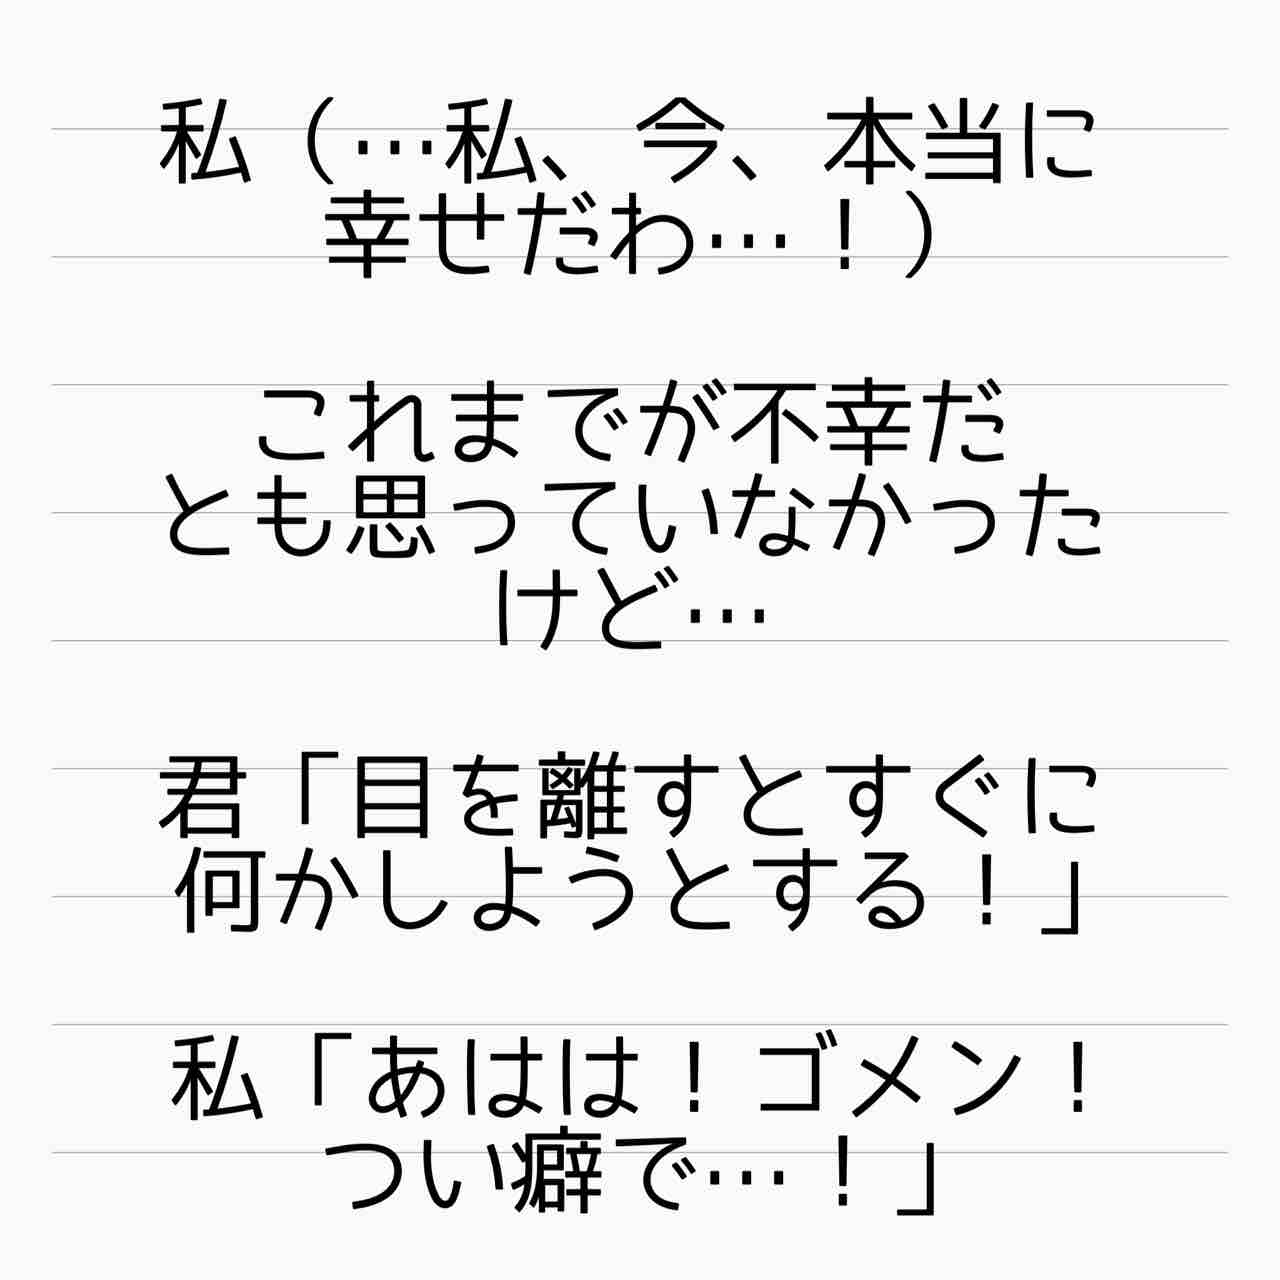 私（…私、今、本当に
幸せだわ…！）
これまでが不幸だ
とも思っていなかった
けど…
君「目を離すとすぐに
何かしようとする！」
私「あはは！ゴメン！
つい癖で…！」